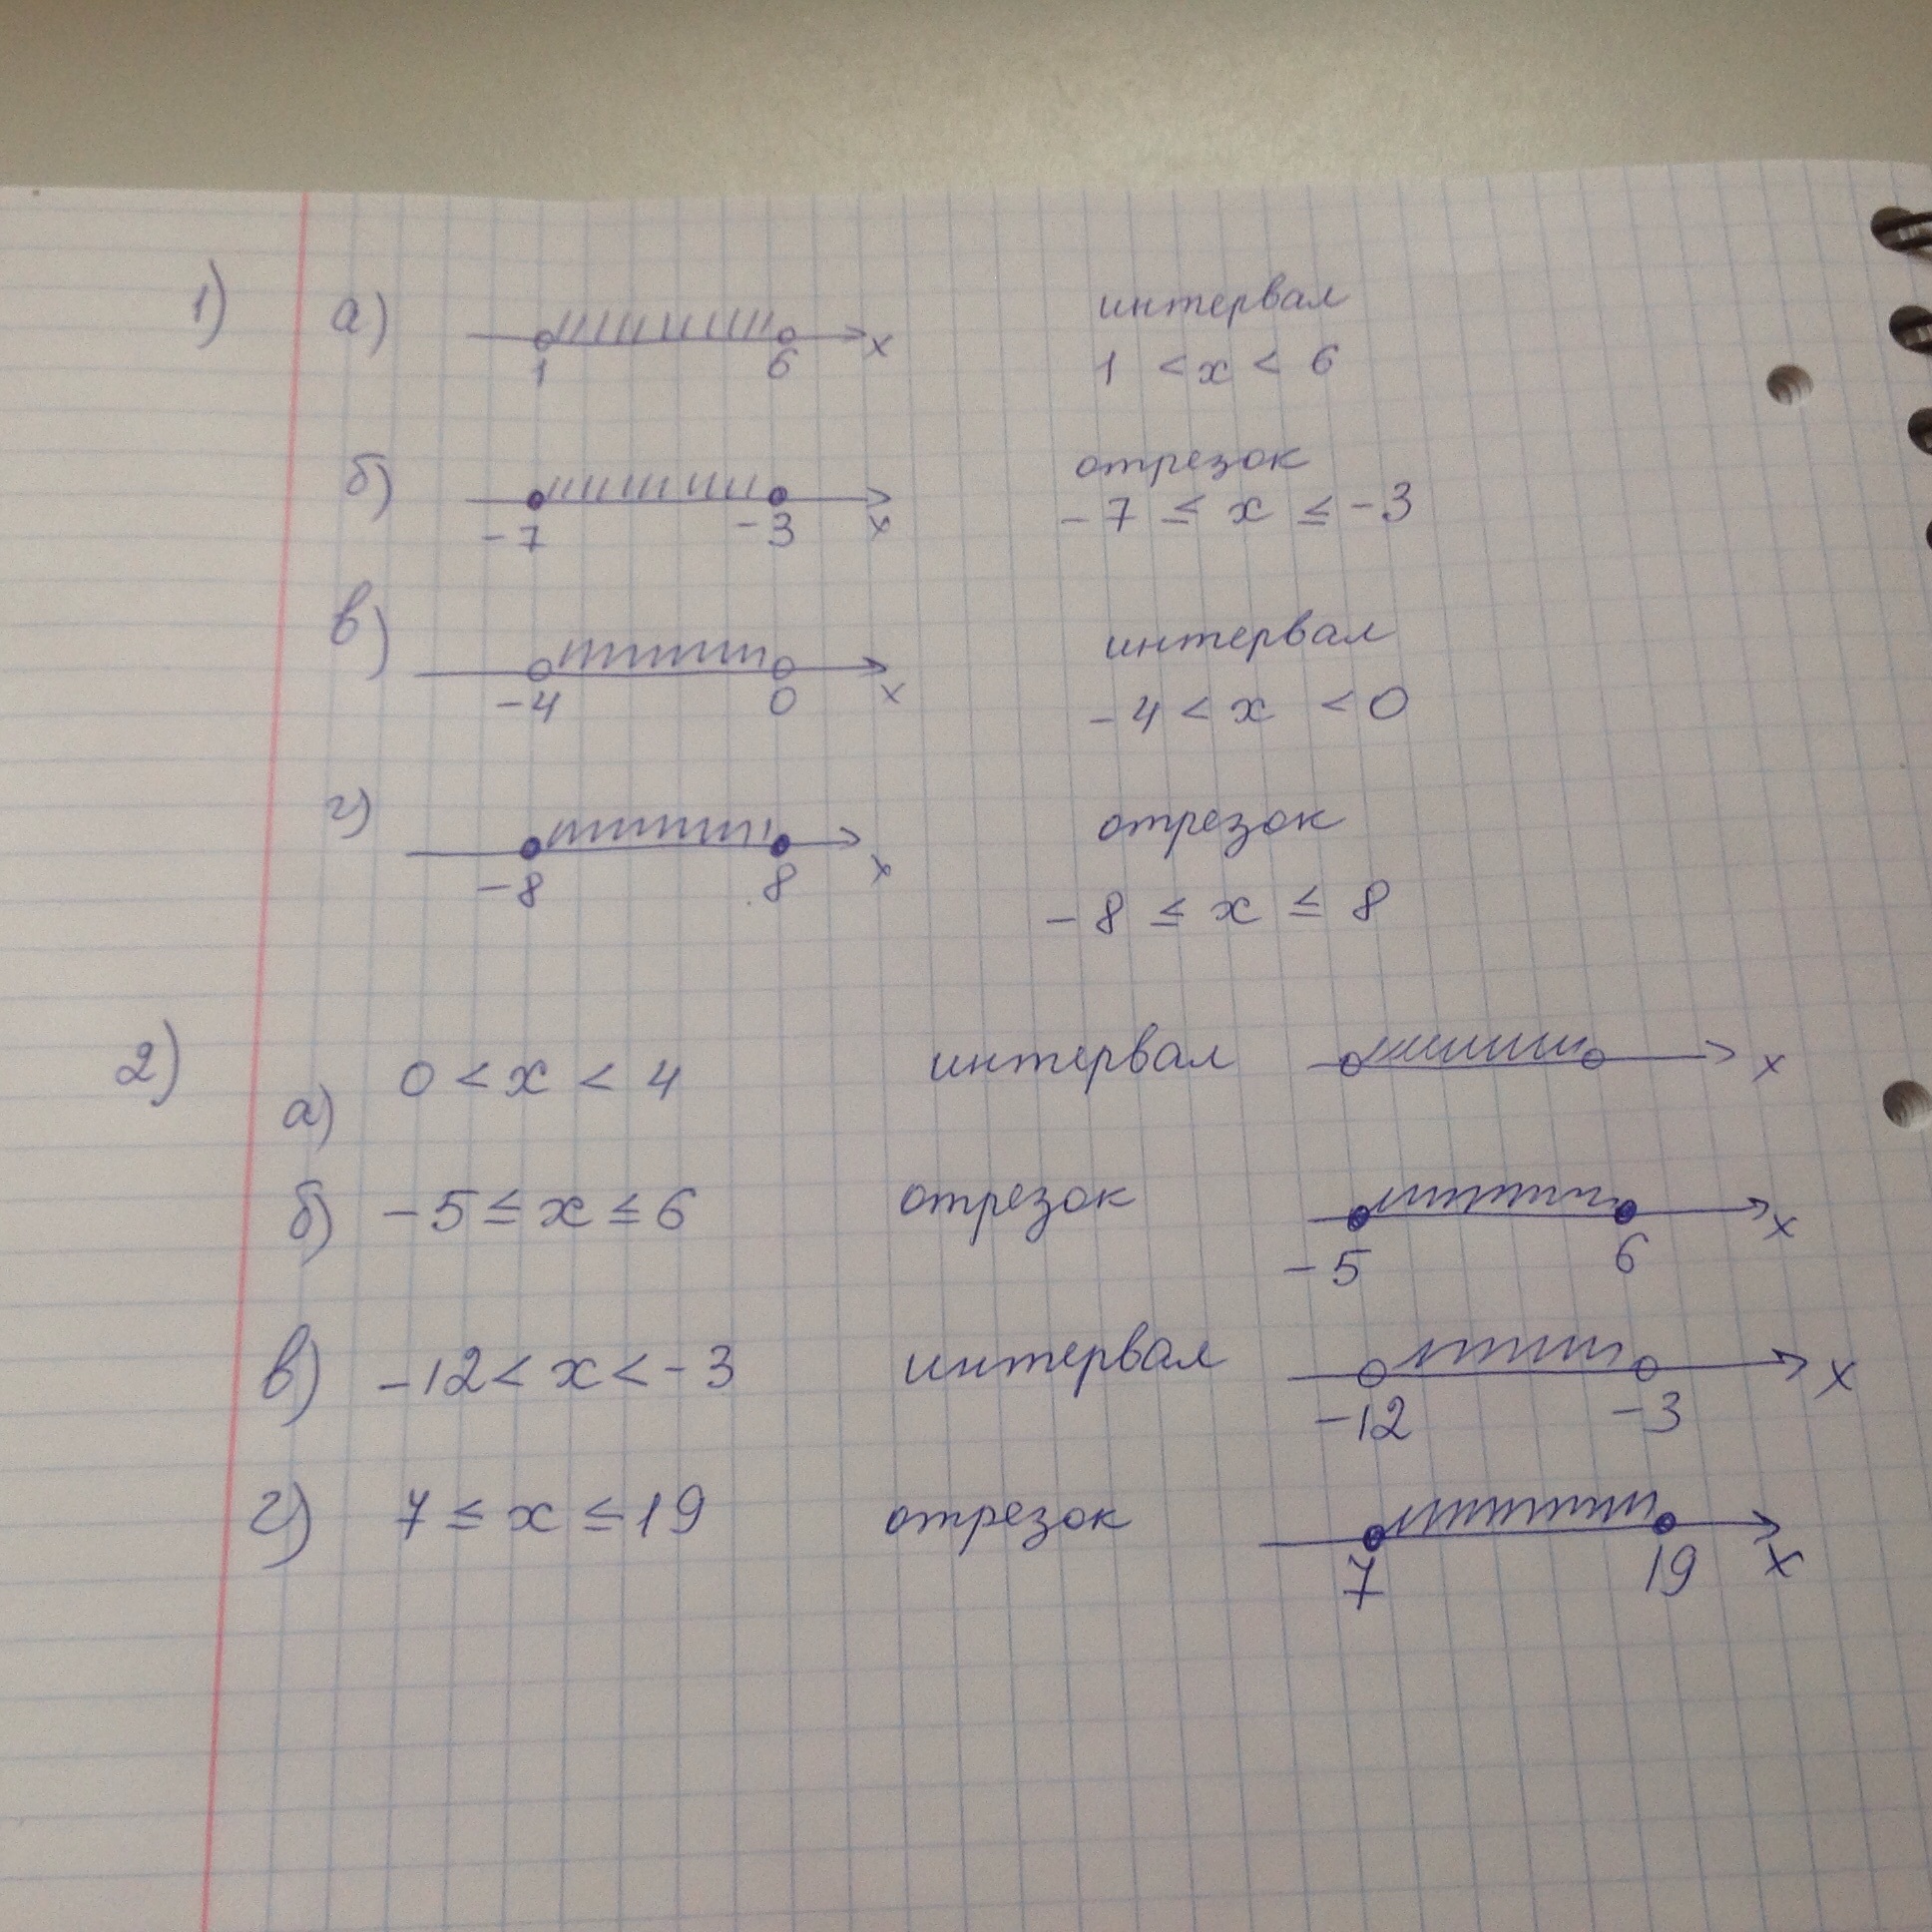 1) а) 1 6 x интервал
1 < x < 6
б) -7 -3 x отрезок
-7 ≤ x ≤ -3
в) -4 0 x интервал
-4 < x < 0
г) -8 8 x отрезок
-8 ≤ x ≤ 8
2) а) 0 < x < 4 интервал x
б) -5 ≤ x ≤ 6 отрезок x
-5 6
в) -12 < x < -3 интервал x
-12 -3
г) 7 ≤ x ≤ 19 отрезок
7 19 x